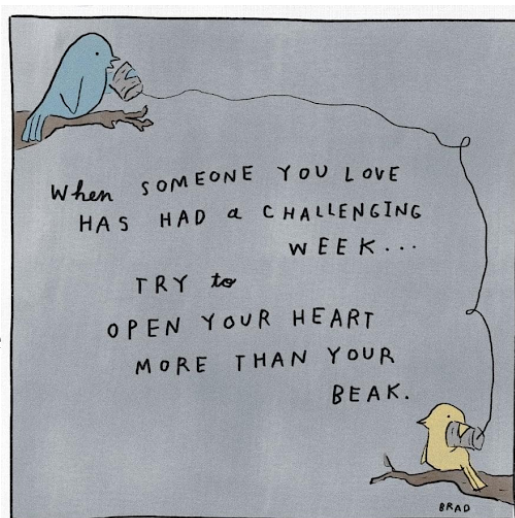 When SOMEONE YOU LOVE
HAS HAD a CHALLENGING
WEEK...
TRY to
OPEN YOUR HEART
MORE THAN YOUR
BEAK.
BRAD